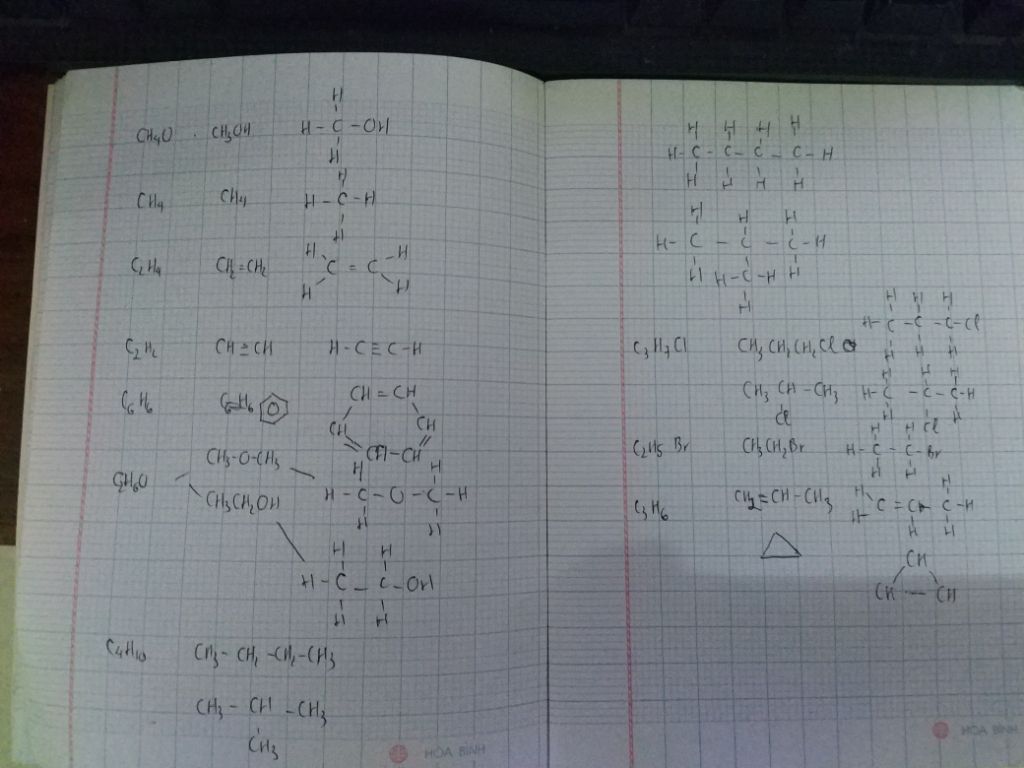 CH4O . CH3OH
H
H - C - OH
H
CH4 CH4
H
H - C - H
H
C2H4 CH2=CH2
H H
C = C
H H
C2H2 CH≡CH H-C≡C-H
C6H6 C6H6
CH = CH
CH CH
CH-CH
C2H6O CH3-O-CH3
H H
H - C - O - C - H
H H
CH3CH2OH
H H
H - C - C - OH
H H
C4H10 CH3 - CH2 - CH2 - CH3
CH3 - CH - CH3
CH3
HÒA BÌNH
H H H H
H- C - C - C - C - H
H H H H
H H H
H- C - C - C - H
H H-C-H H
H
C3H7Cl CH3CH2CH2Cl
H H H
H- C - C - C-Cl
H H H
CH3 CH - CH3
Cl
H H H
H- C - C - C-H
H Cl H
C2H5Br CH3CH2Br
H H
H - C - C - Br
H H
C3H6 CH2=CH-CH3
H H
C = C C - H
H H H
CH
CH — CH
HÒA BÌNH